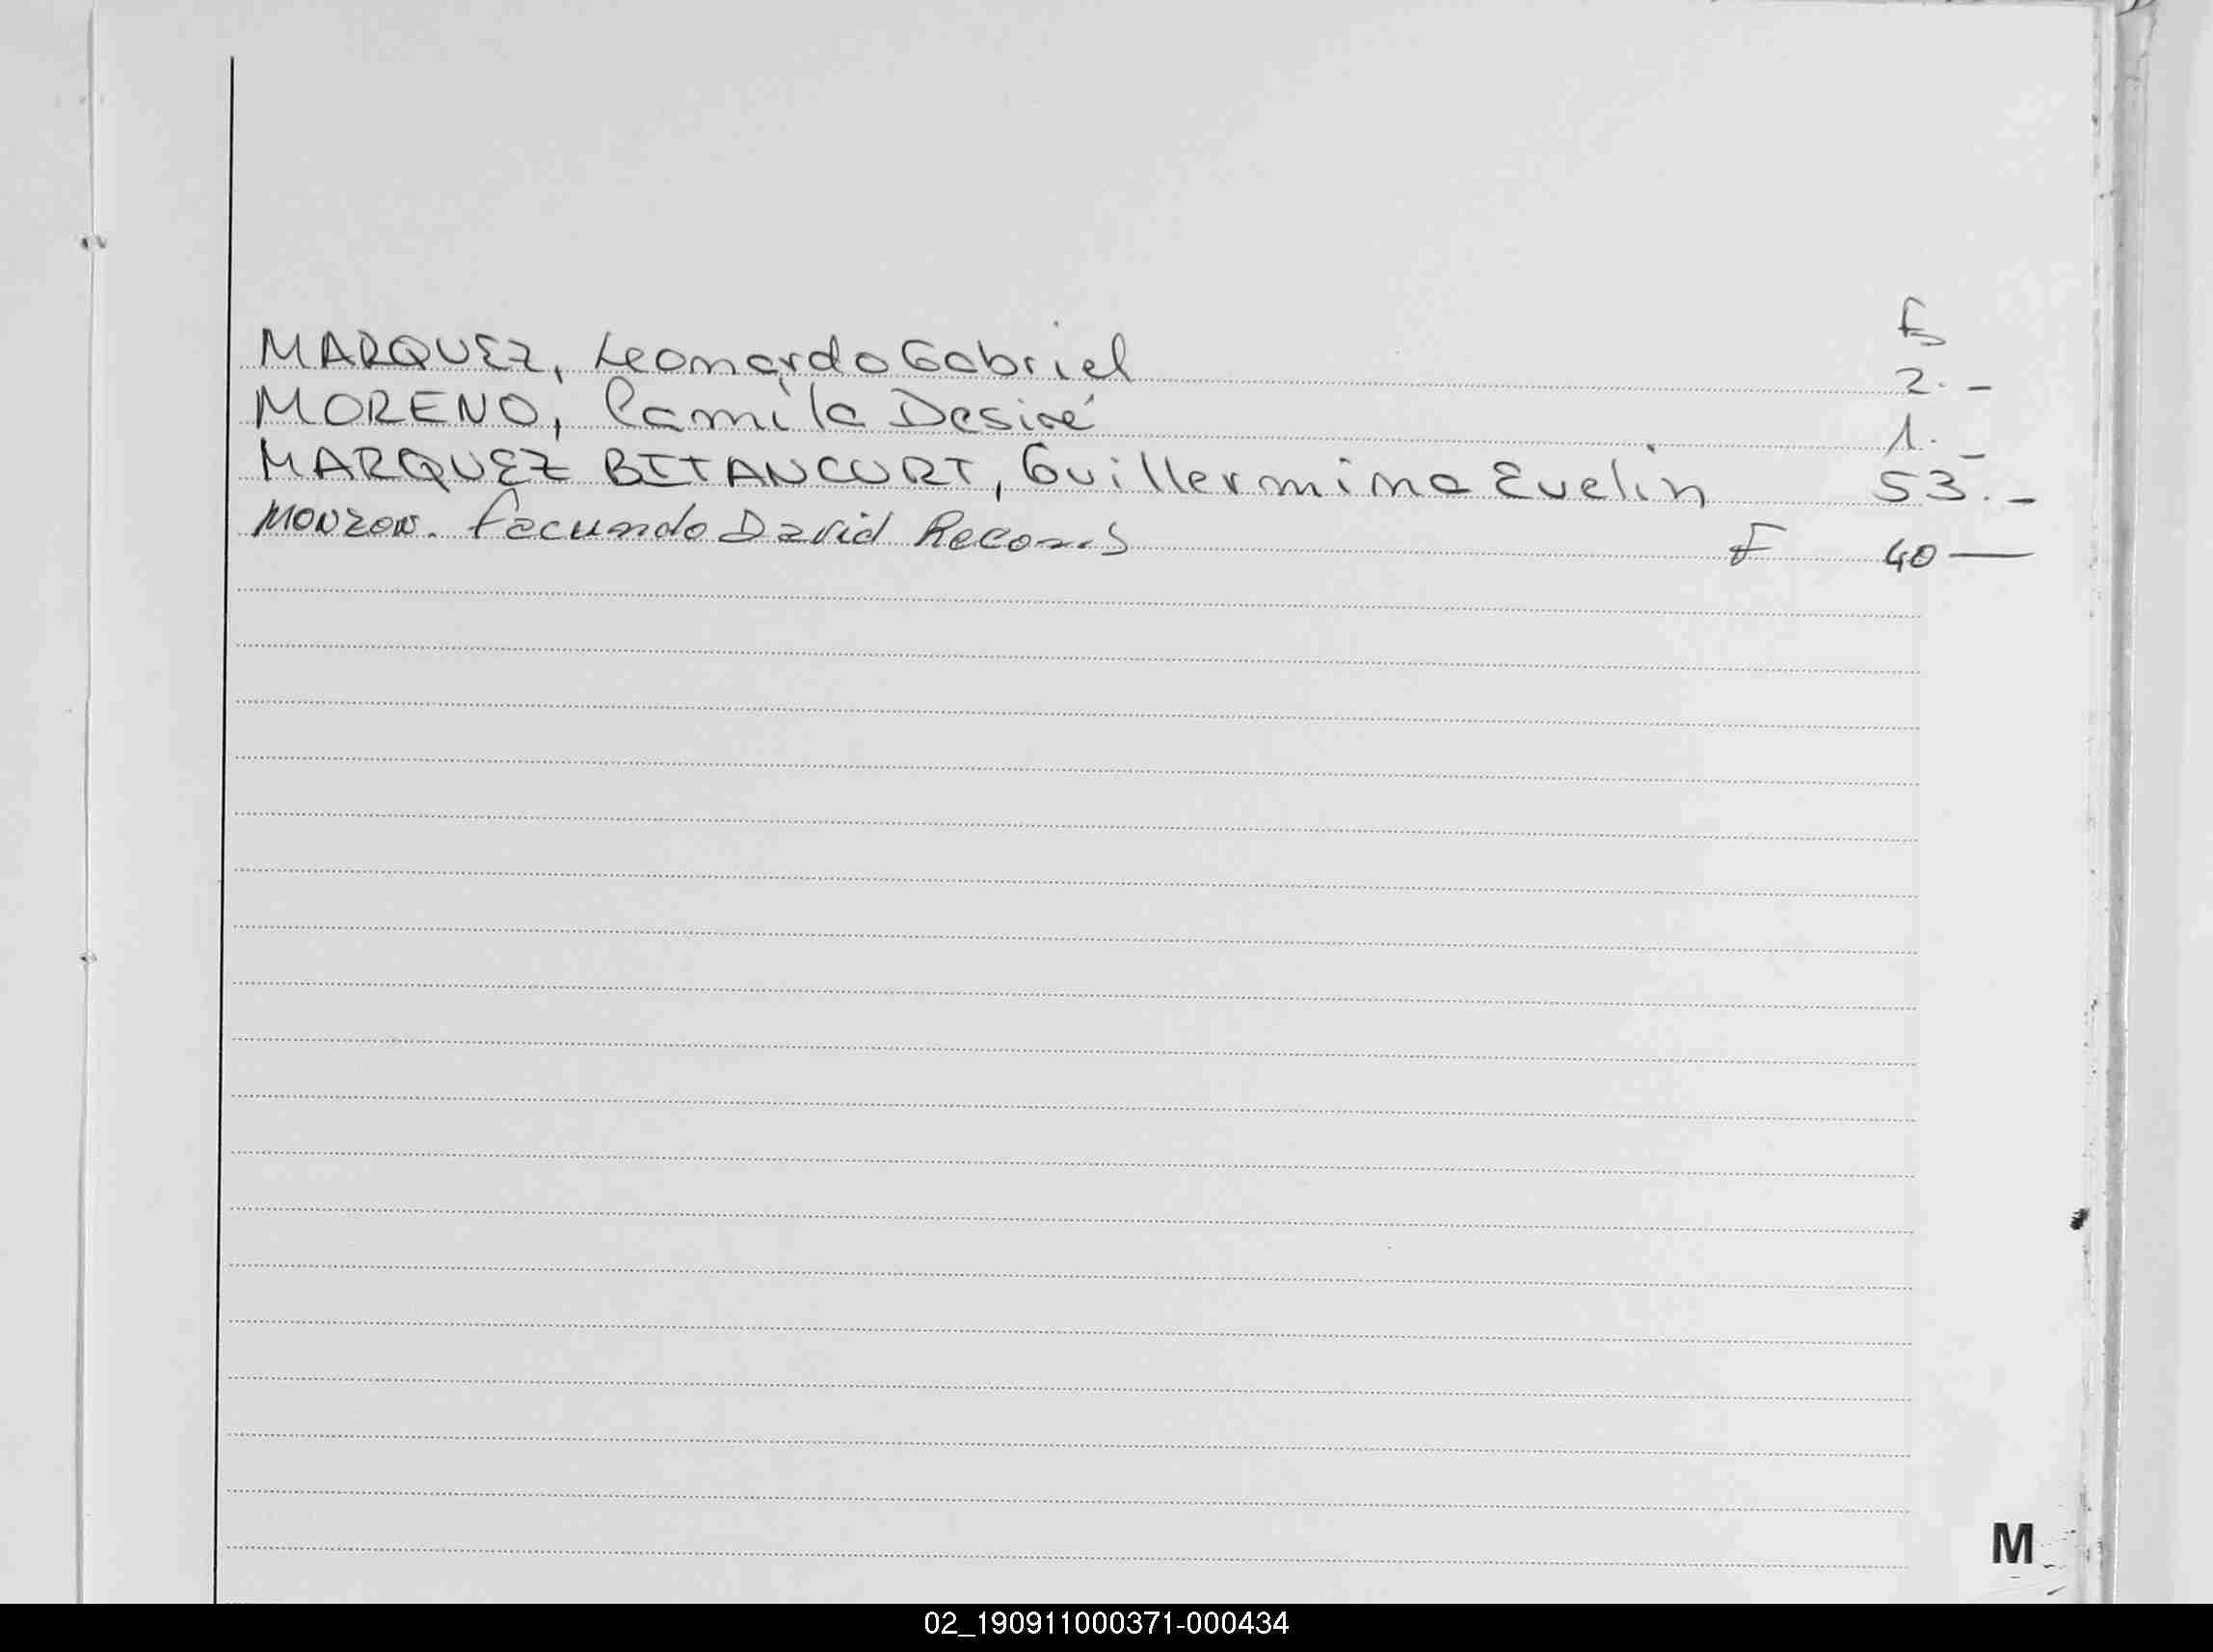 Fs
MARQUEZ, Leonardo Gabriel 2.-
MORENO, Camila Desiré 1.-
MARQUEZ BITANCURT, Guillermina Evelin 53.-
MONZON. Facundo David F 40—
M
02_190911000371-000434